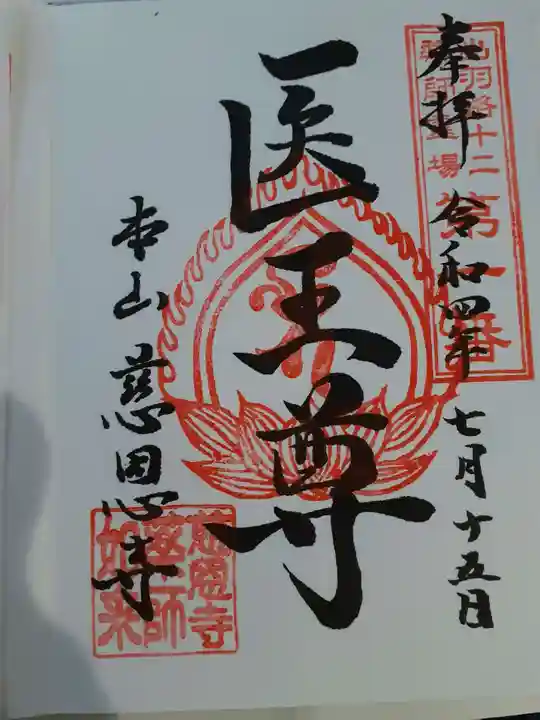 奉拝 令和四年 七月十五日
出羽路十二
薬師霊場
第一番
医王尊
本山 慈恩寺
慈恩寺
薬師
如来